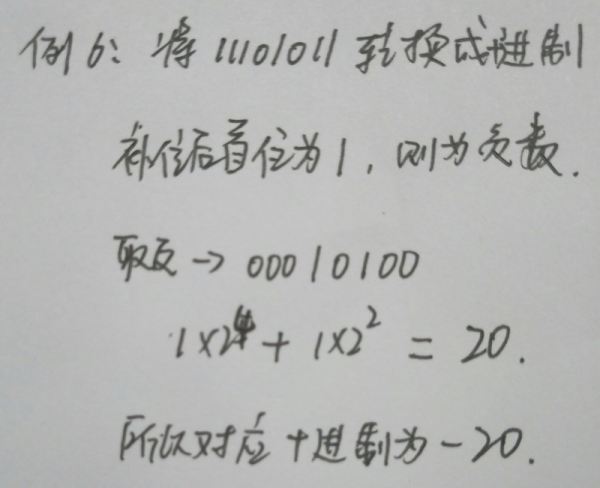 例6: 将11101011转换成十进制
补位后首位为1,则为负数.
取反→00010100
1×2⁴+1×2²=20.
所以对应十进制为-20.